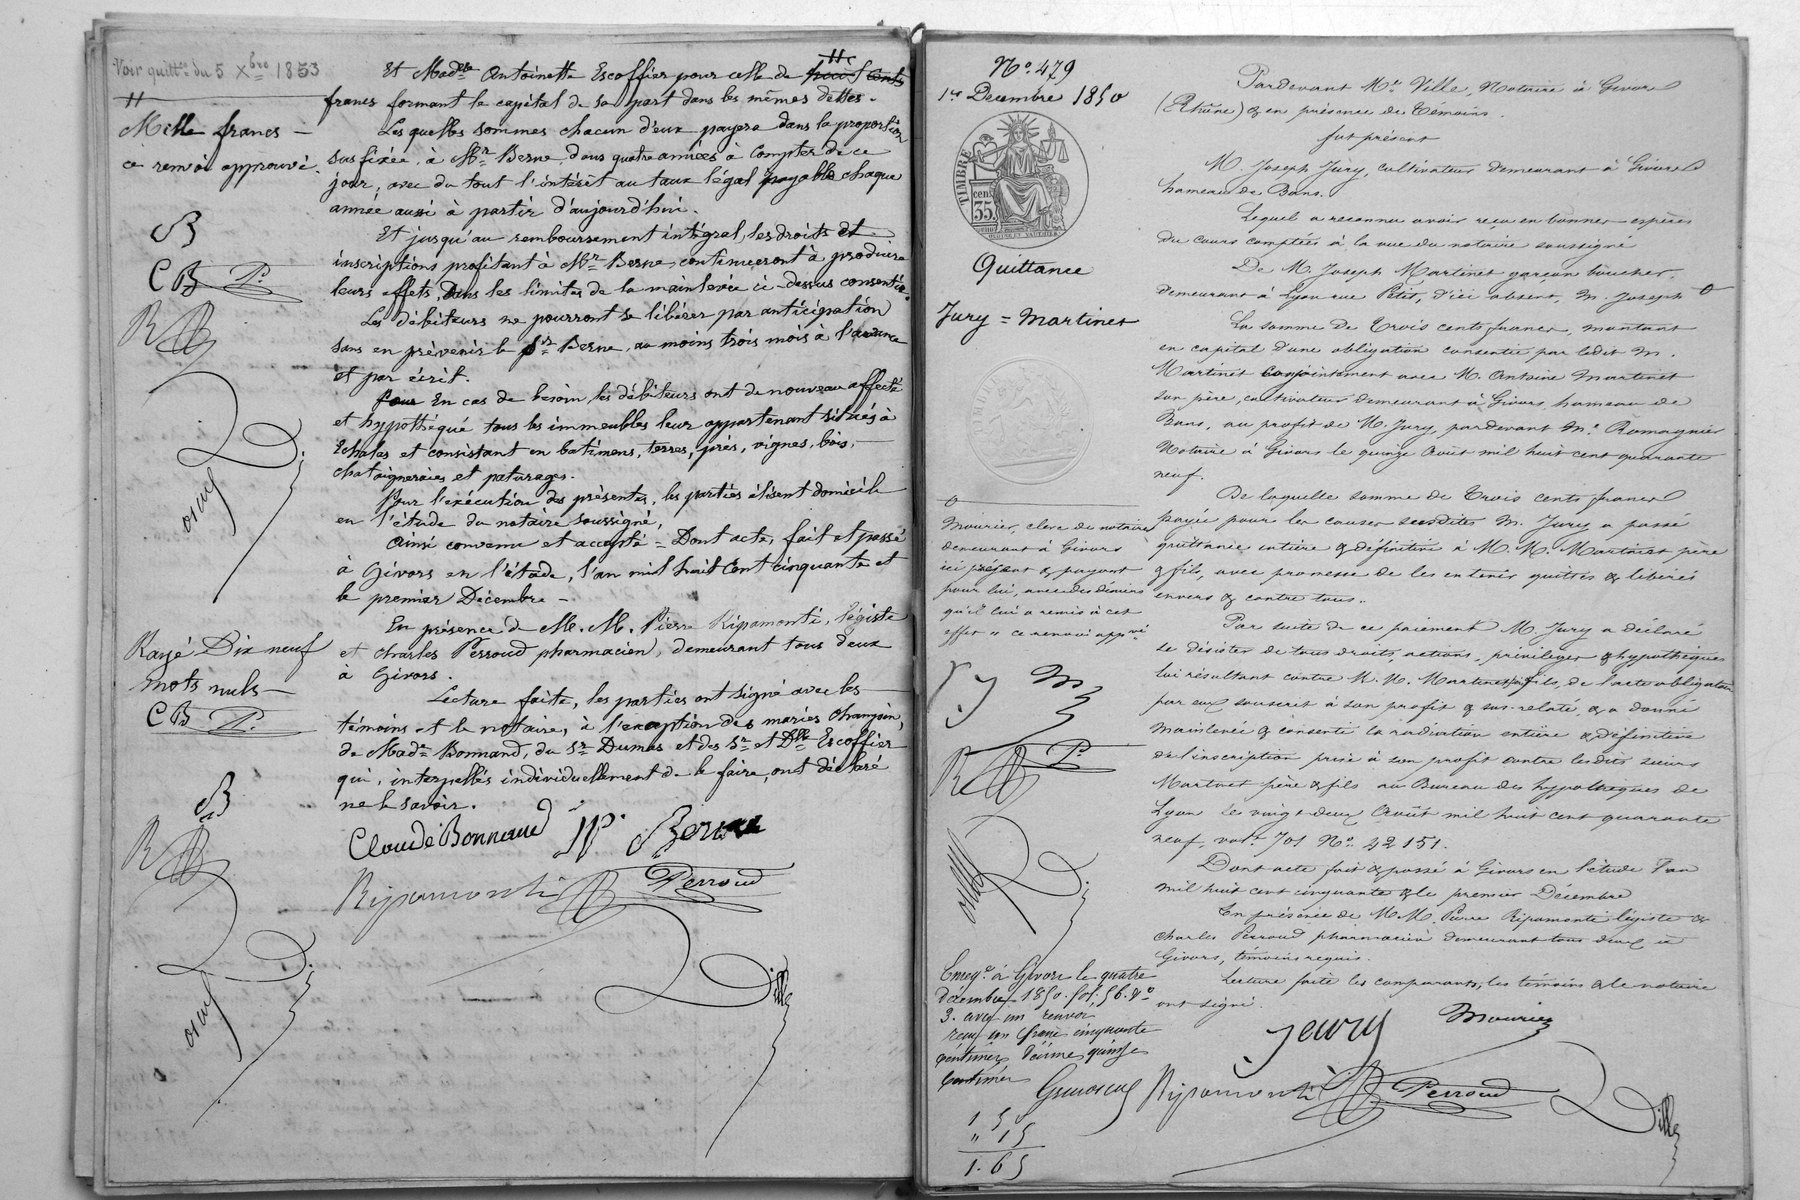 Voir quittce du 5 Xbre 1853
Mille francs —
ce renvoi approuvé.
B
CB P.
R
Rayé Dix neuf
mots nuls —
CB P.
B
R
Et Madelle Antoinette Escoffier pour celle de huit cents
francs formant le capital de sa part dans les mêmes dettes.
Les quelles sommes chacun d'eux payera dans la proportion
sus fixée, à Mr Berne, dans quatre années à compter de ce
jour, avec du tout l'intérêt au taux légal payable chaque
année aussi à partir d'aujourd'hui.
Et jusqu'au remboursement intégral, les droits et
inscriptions profitant à Mr Berne, continueront à produire
leurs effets, dans les limites de la mainlevée ci-dessus consentie.
Les débiteurs ne pourront se libérer par anticipation
sans en prévenir le Sr Berne, au moins trois mois à l'avance
et par écrit.
Pour En cas de besoin, les débiteurs ont de nouveau affecté
et hypothéqué tous les immeubles leur appartenant situés à
Echalas et consistant en batimens, terres, près, vignes, bois,
chataigneraies et paturages.
Pour l'exécution des présentes, les parties élisent domicile
en l'étude du notaire soussigné,
Ainsi convenu et accepté = Dont acte, fait et passé
à Givors en l'étude, l'an mil huit cent cinquante et
le premier Décembre —
En présence de M. M. Pierre Ripamonti, légiste
et Charles Perroud pharmacien, demeurant tous deux
à Givors.
Lecture faite, les parties ont signé avec les
témoins et le notaire, à l'exception des mariés Champin,
de Made Bonnand, du Sr Dumas et des Sr et Dlle Escoffier
qui, interpellés individuellement de le faire, ont déclaré
ne le savoir.
Claude Bonnand Berne
Ripamonti Perroud
Ville
No. 479
1er Decembre 1850
TIMBRE
35
Quittance
Jury = Martinet
Mourier, clerc de notaire
demeurant à Givors
ici présent & payant
pour lui, avec des deniers
qu'il lui a remis à cet
effet " ce renvoi appvé
J. J M
R P.
Enregé à Givors le quatre
décembre 1850. fol. 56. vo
3. avec un renvoi
reçu un franc cinquante
centimes décime quinze
centimes
1 50
" 15
1. 65
Pardevant Me Ville, Notaire à Givors
(Rhône) & en présence de Témoins.
fut présent
M. Joseph Jury, cultivateur demeurant à Givors
hameau de Bans.
Lequel a reconnu avoir reçu en bonnes espèces
du cours comptées à la vue du notaire soussigné
De M. Joseph Martinet garçon boucher,
demeurant à Lyon rue Petit, d'ici absent, M. Joseph
La somme de Trois cents francs, montant
en capital d'une obligation consentie par ledit M.
Martinet conjointement avec M. Antoine Martinet
son père, cultivateur demeurant à Givors hameau de
Bans, au profit de M. Jury, pardevant Me Romagnier
Notaire à Givors le quinze Août mil huit cent quarante
neuf.
De laquelle somme de Trois cents francs
payée pour les causes susdites M. Jury a passé
quittance entière & définitive à M. M. Martinet père
& fils, avec promesse de les en tenir quittes & libérés
envers & contre tous.
Par suite de ce paiement M. Jury a déclaré
se désister de tous droits, actions, privilèges & hypothèques
lui résultant contre M. M. Martinet père & fils, de l'acte obligation
par eux souscrit à son profit & sus-relaté, & a donné
mainlevée & consenti la radiation entière & définitive
de l'inscription prise à son profit contre lesdits sieurs
Martinet père & fils au Bureau des hypothèques de
Lyon le vingt deux Août mil huit cent quarante
neuf, vol. 701 No. 22 151.
Dont acte fait & passé à Givors en l'étude l'an
mil huit cent cinquante & le premier Décembre
En présence de M. M. Pierre Ripamonti légiste &
Charles Perroud pharmacien demeurant tous deux à
Givors, témoins requis.
Lecture faite les comparants, les témoins & le notaire
ont signé.
Jeury Mourier
Ripamonti Perroud Ville